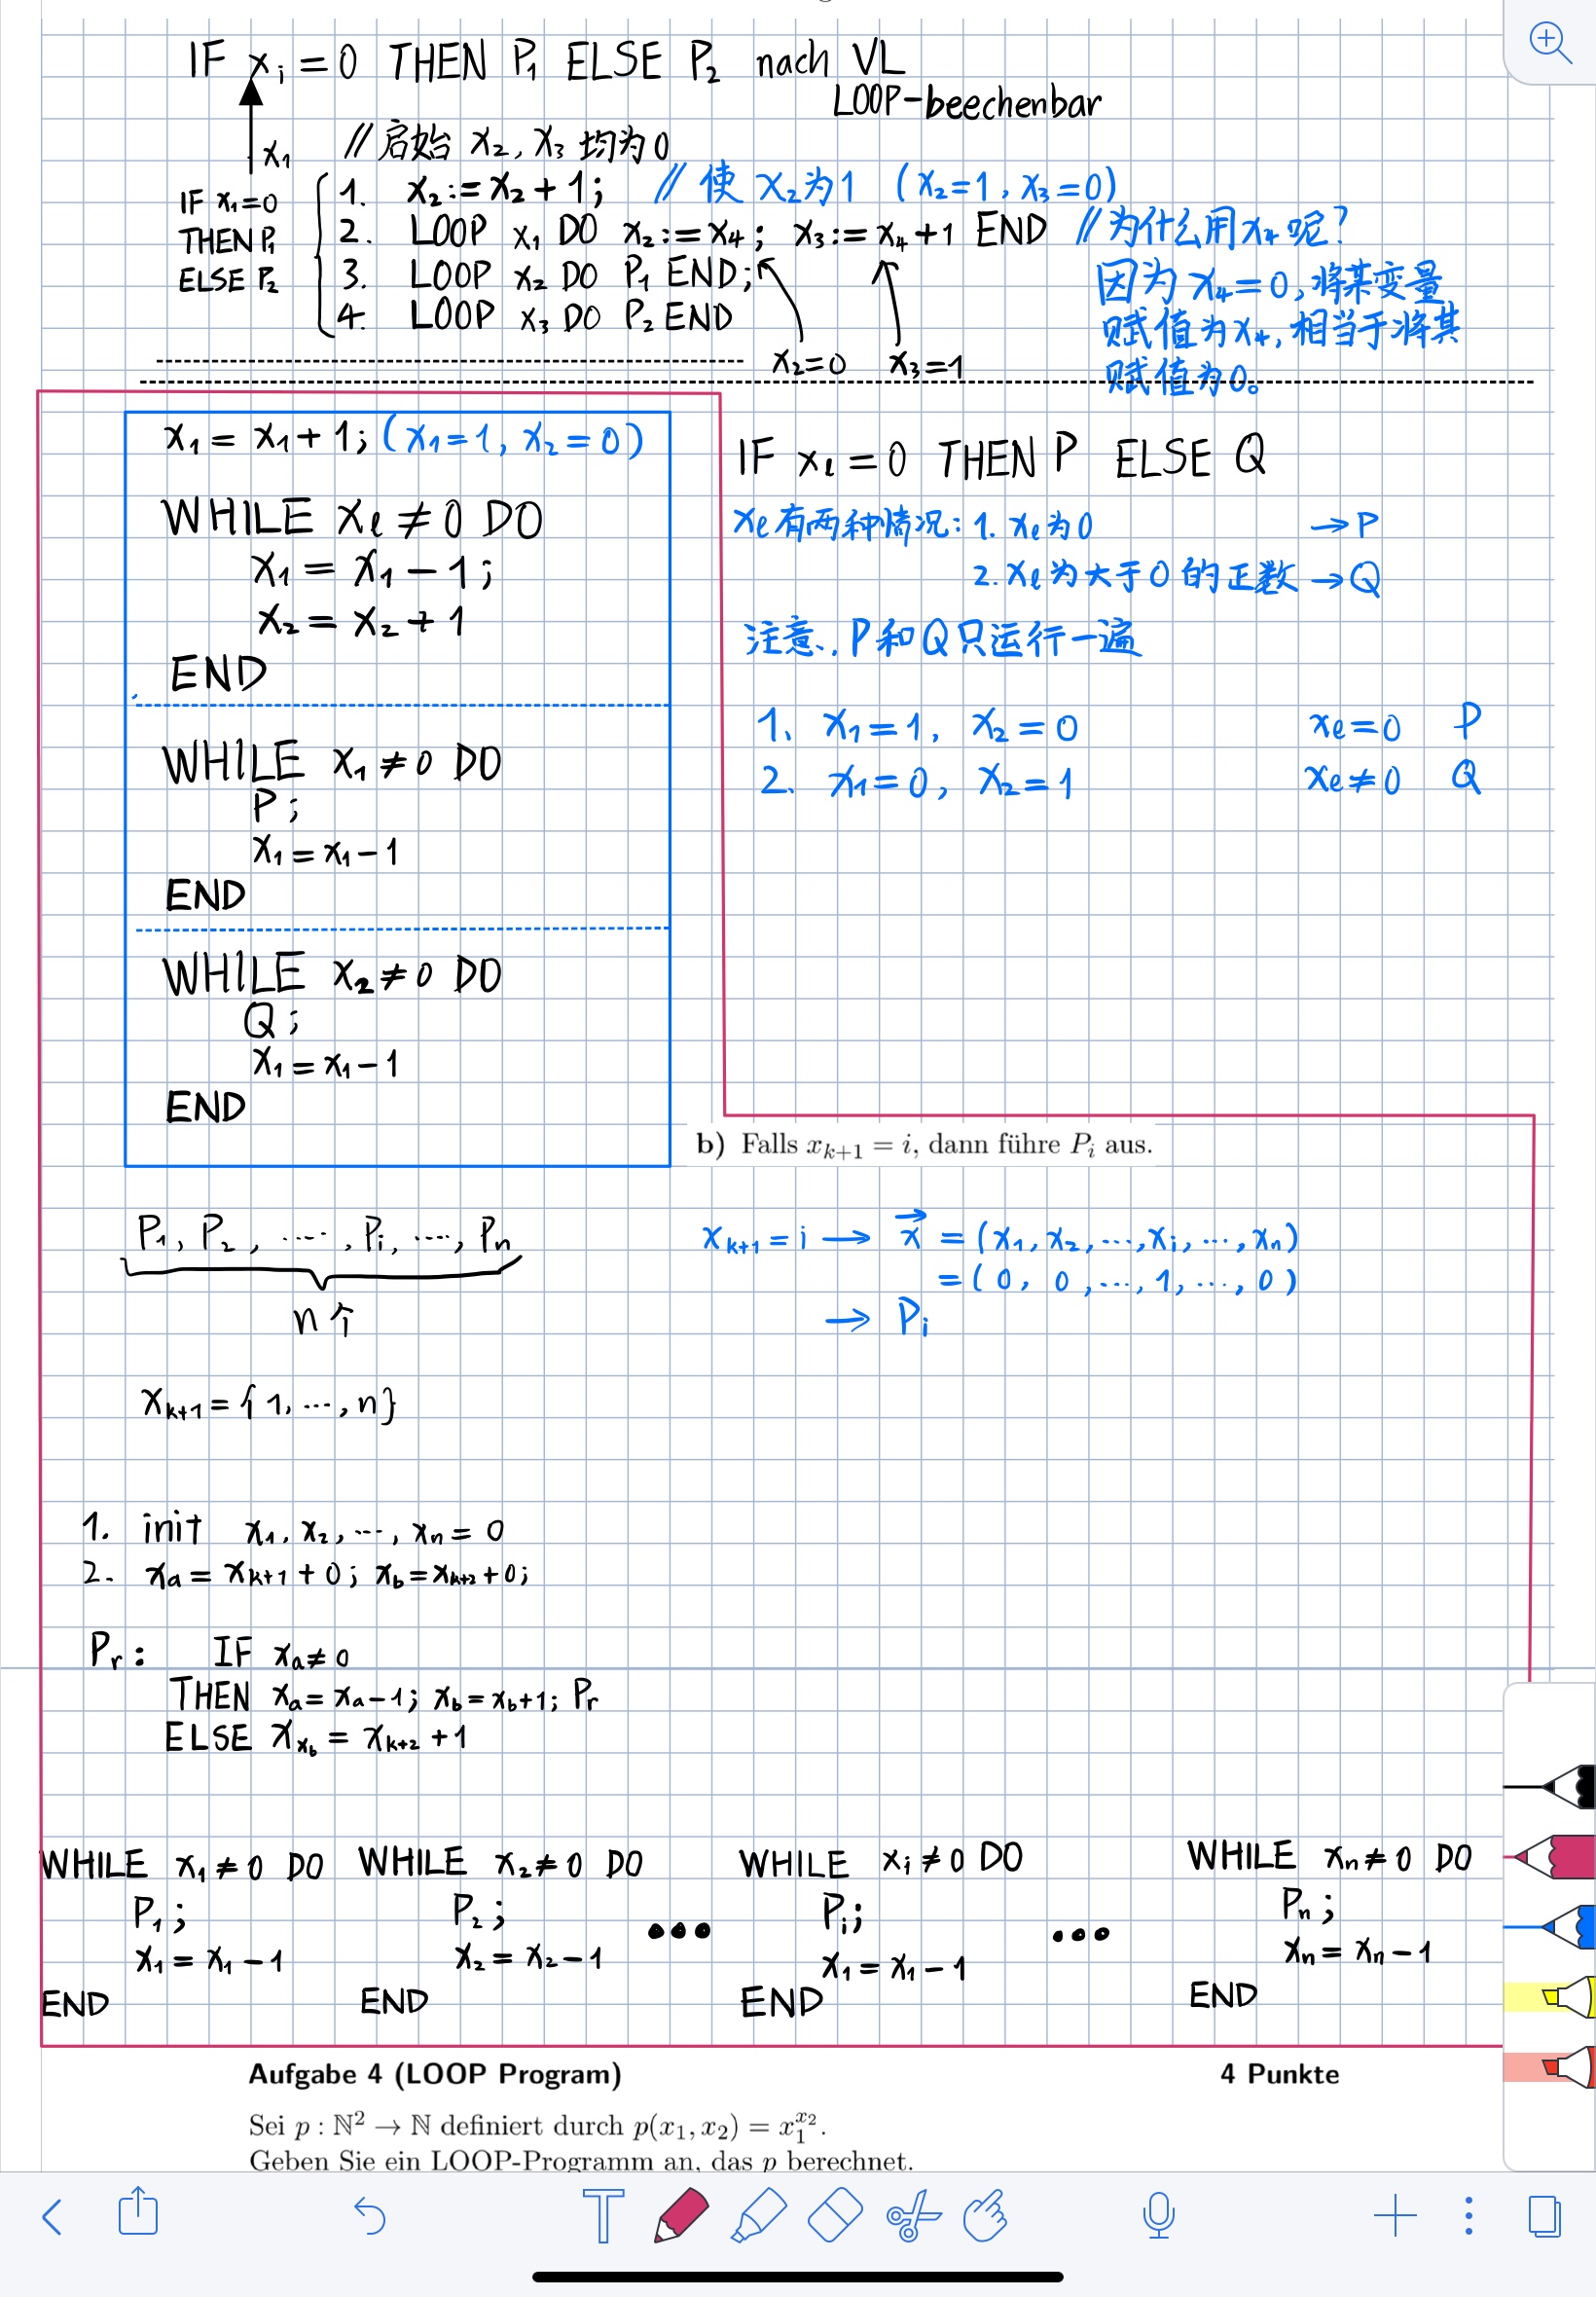 IF xᵢ = 0 THEN P₁ ELSE P₂ nach VL
LOOP-beechenbar
x₁
//启始 x₂, x₃ 均为0
IF x₁=0
THEN P₁
ELSE P₂
1. x₂:=x₂+1; // 使 x₂为1 (x₂=1, x₃=0)
2. LOOP x₁ DO x₂:=x₄; x₃:=x₄+1 END //为什么用x₄呢?
3. LOOP x₂ DO P₁ END;
4. LOOP x₃ DO P₂ END
x₂=0 x₃=1
因为 x₄=0,将某变量
赋值为x₄,相当于将其
赋值为0。
x₁ = x₁+1; (x₁=1, x₂=0)
WHILE xₑ ≠ 0 DO
x₁ = x₁-1;
x₂ = x₂+1
END
WHILE x₁ ≠ 0 DO
P;
x₁ = x₁-1
END
WHILE x₂ ≠ 0 DO
Q;
x₁ = x₁-1
END
IF xₑ = 0 THEN P ELSE Q
xₑ有两种情况: 1. xₑ为0 → P
2. xₑ为大于0的正数 → Q
注意, P和Q只运行一遍
1. x₁=1, x₂=0 xₑ=0 P
2. x₁=0, x₂=1 xₑ≠0 Q
b) Falls xₖ₊₁ = i, dann führe Pᵢ aus.
P₁, P₂, ....., Pᵢ, ...., Pₙ
n个
xₖ₊₁ = i → x⃗ = (x₁, x₂, ..., xᵢ, ..., xₙ)
= (0, 0, ..., 1, ..., 0)
→ Pᵢ
xₖ₊₁ = {1, ..., n}
1. init x₁, x₂, ..., xₙ = 0
2. xₐ = xₖ₊₁+0; x_b = xₖ₊₂+0;
Pᵣ: IF xₐ≠0
THEN xₐ = xₐ-1; x_b = x_b+1; Pᵣ
ELSE x_{x_b} = xₖ₊₂ + 1
WHILE x₁ ≠ 0 DO
P₁;
x₁ = x₁-1
END
WHILE x₂ ≠ 0 DO
P₂;
x₂ = x₂-1
END
...
WHILE xᵢ ≠ 0 DO
Pᵢ;
x₁ = x₁-1
END
...
WHILE xₙ ≠ 0 DO
Pₙ;
xₙ = xₙ-1
END
Aufgabe 4 (LOOP Program) 4 Punkte
Sei p : ℕ² → ℕ definiert durch p(x₁, x₂) = x₁^{x₂}.
Geben Sie ein LOOP-Programm an, das p berechnet.